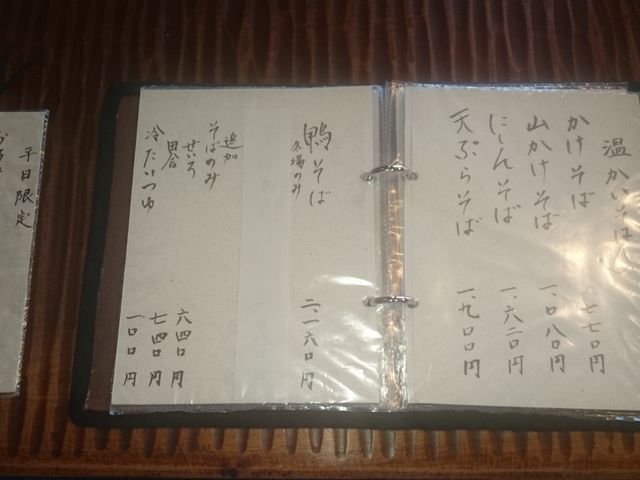 温かいそば
かけそば 七七〇円
山かけそば 一、〇八〇円
にしんそば 一、六二〇円
天ぷらそば 一、九〇〇円
鴨そば 二、一六〇円
冬場のみ
追加
そばのみ
せいろ 六四〇円
田舎 七四〇円
冷たいつゆ 一〇〇円
平日限定